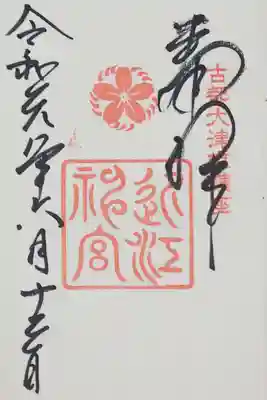 奉拝
古都大津鎮座
近江
神宮
令和元年六月十三日